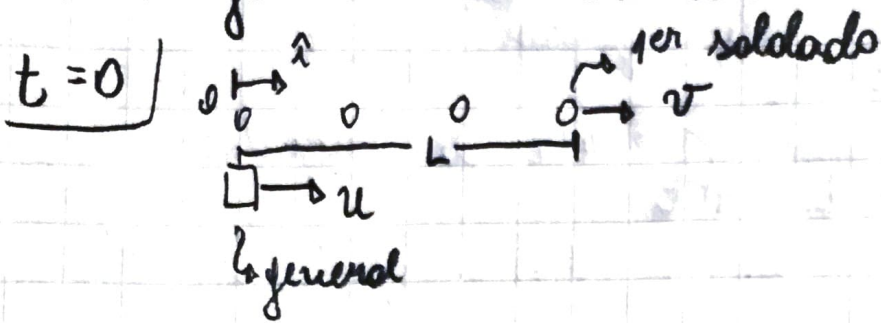 t = 0
î
1er soldado
0
v
L
u
general